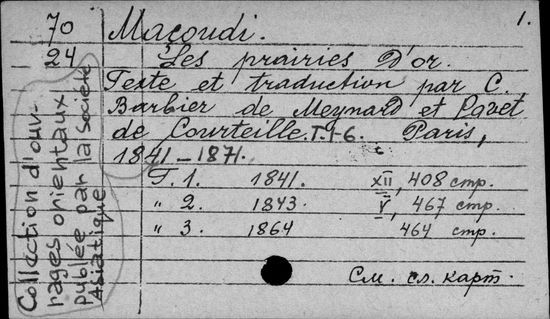 1.
70
24
Maçoudi.
Les prairies D'or.
Texte et traduction par C.
Barbier de Meynard et Pavet
de Courteille. T. 1-6. Paris,
1841-1871.
T. 1. 1841. XII, 408 стр.
" 2. 1843. V, 467 стр.
" 3. 1864 464 стр.
См. сл. карт.
Collection d'ouv-
rages orientaux
publée par la Société
Asiatique